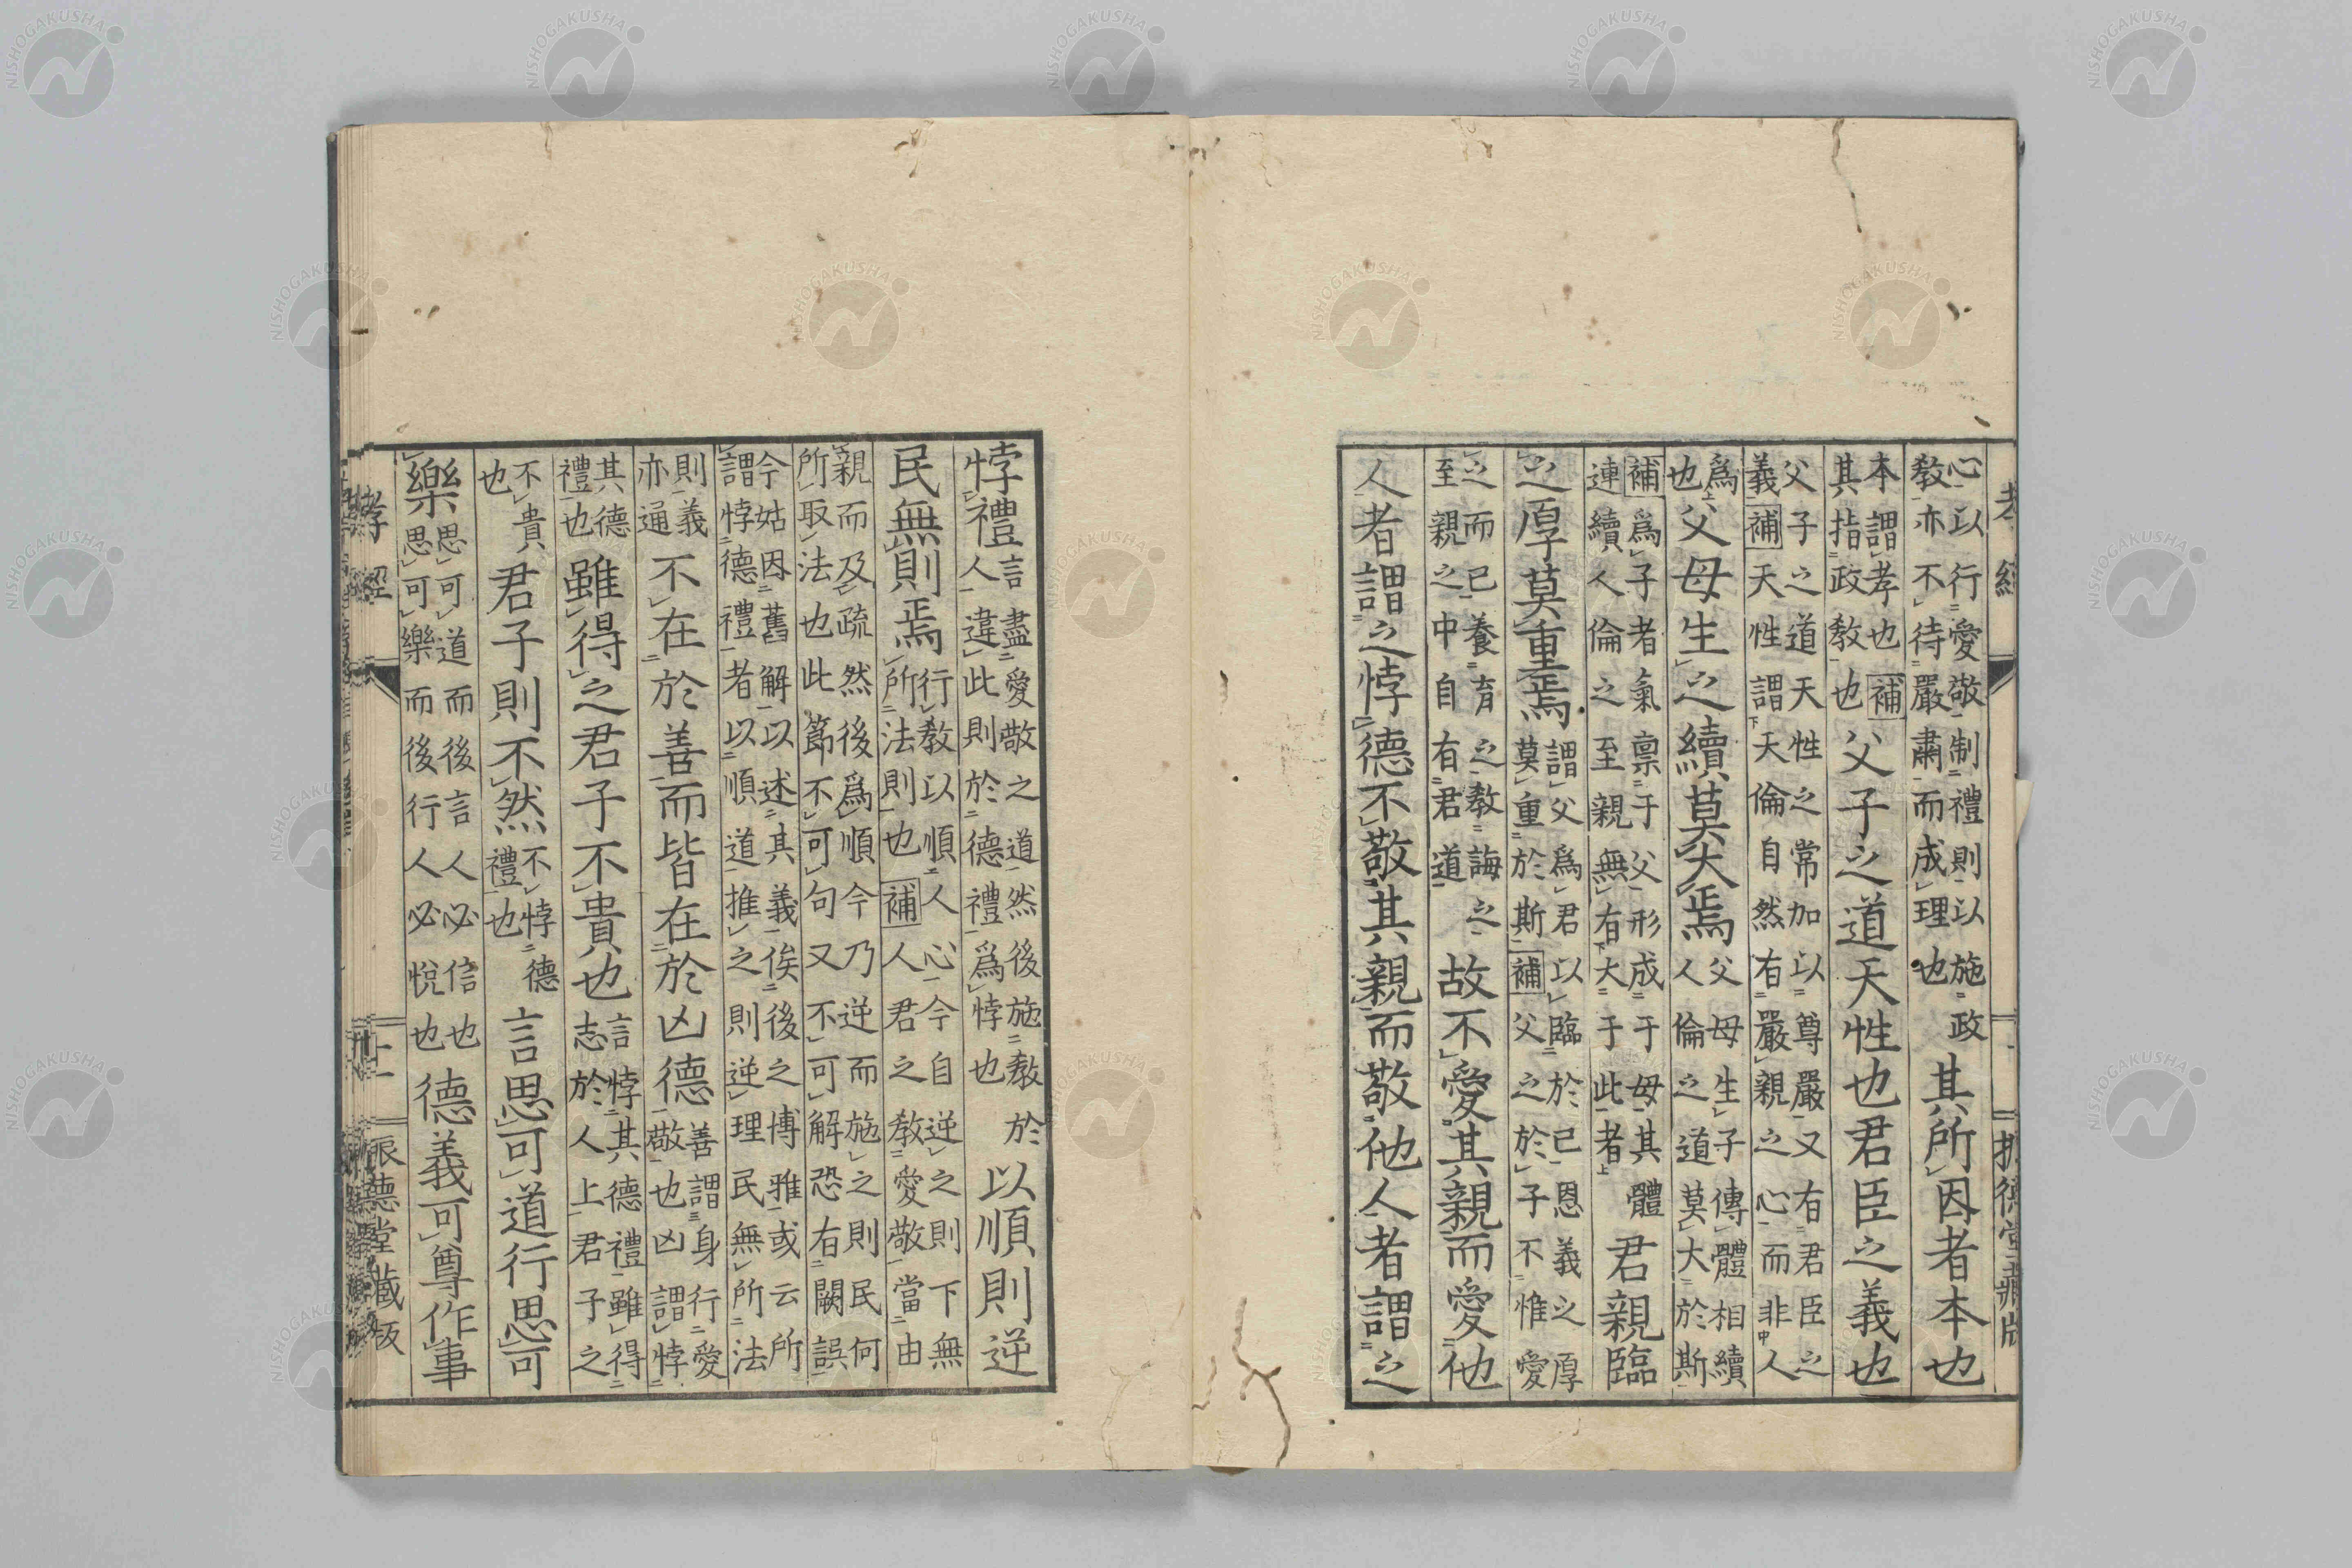 孝經 振德堂藏版
心以行愛敬制禮則以施政
教亦不待嚴肅而成理也
其所因者本也
本謂孝也補
其指政教也
父子之道天性也君臣之義也
父子之道天性之常加以尊嚴又有君臣之
義補天性謂天倫自然有嚴親之心而非人
爲
也
父母生之續莫大焉
父母生子傳體相續
人倫之道莫大於斯
補爲子者氣稟于父形成于母其體
連續人倫之至親無有大于此者
君親臨
之厚莫重焉
謂父爲君以臨於已恩義之厚
莫重於斯補父之於子不惟愛
之而已養育之教誨之
至親之中自有君道
故不愛其親而愛他
人者謂之悖德不敬其親而敬他人者謂之
悖禮
言盡愛敬之道然後施教於
人違此則於德禮爲悖也
以順則逆
民無則焉
行教以順人心今自逆之則下無
所法則也補人君之教愛敬當由
親而及疏然後爲順今乃逆而施之則民何
所取法也此節不可句又不可解恐有闕誤
今姑因舊解以述其義俟後之博雅或云所
謂悖德禮者以順道推之則逆理民無所法
則義
亦通
不在於善而皆在於凶德
善謂身行愛
敬也凶謂悖
其德
禮也
雖得之君子不貴也
言悖其德禮雖得
志於人上君子之
不貴
也
君子則不然
不悖德
禮也
言思可道行思可
樂
思可道而後言人必信也
思可樂而後行人必悅也
德義可尊作事
孝經 振德堂藏版